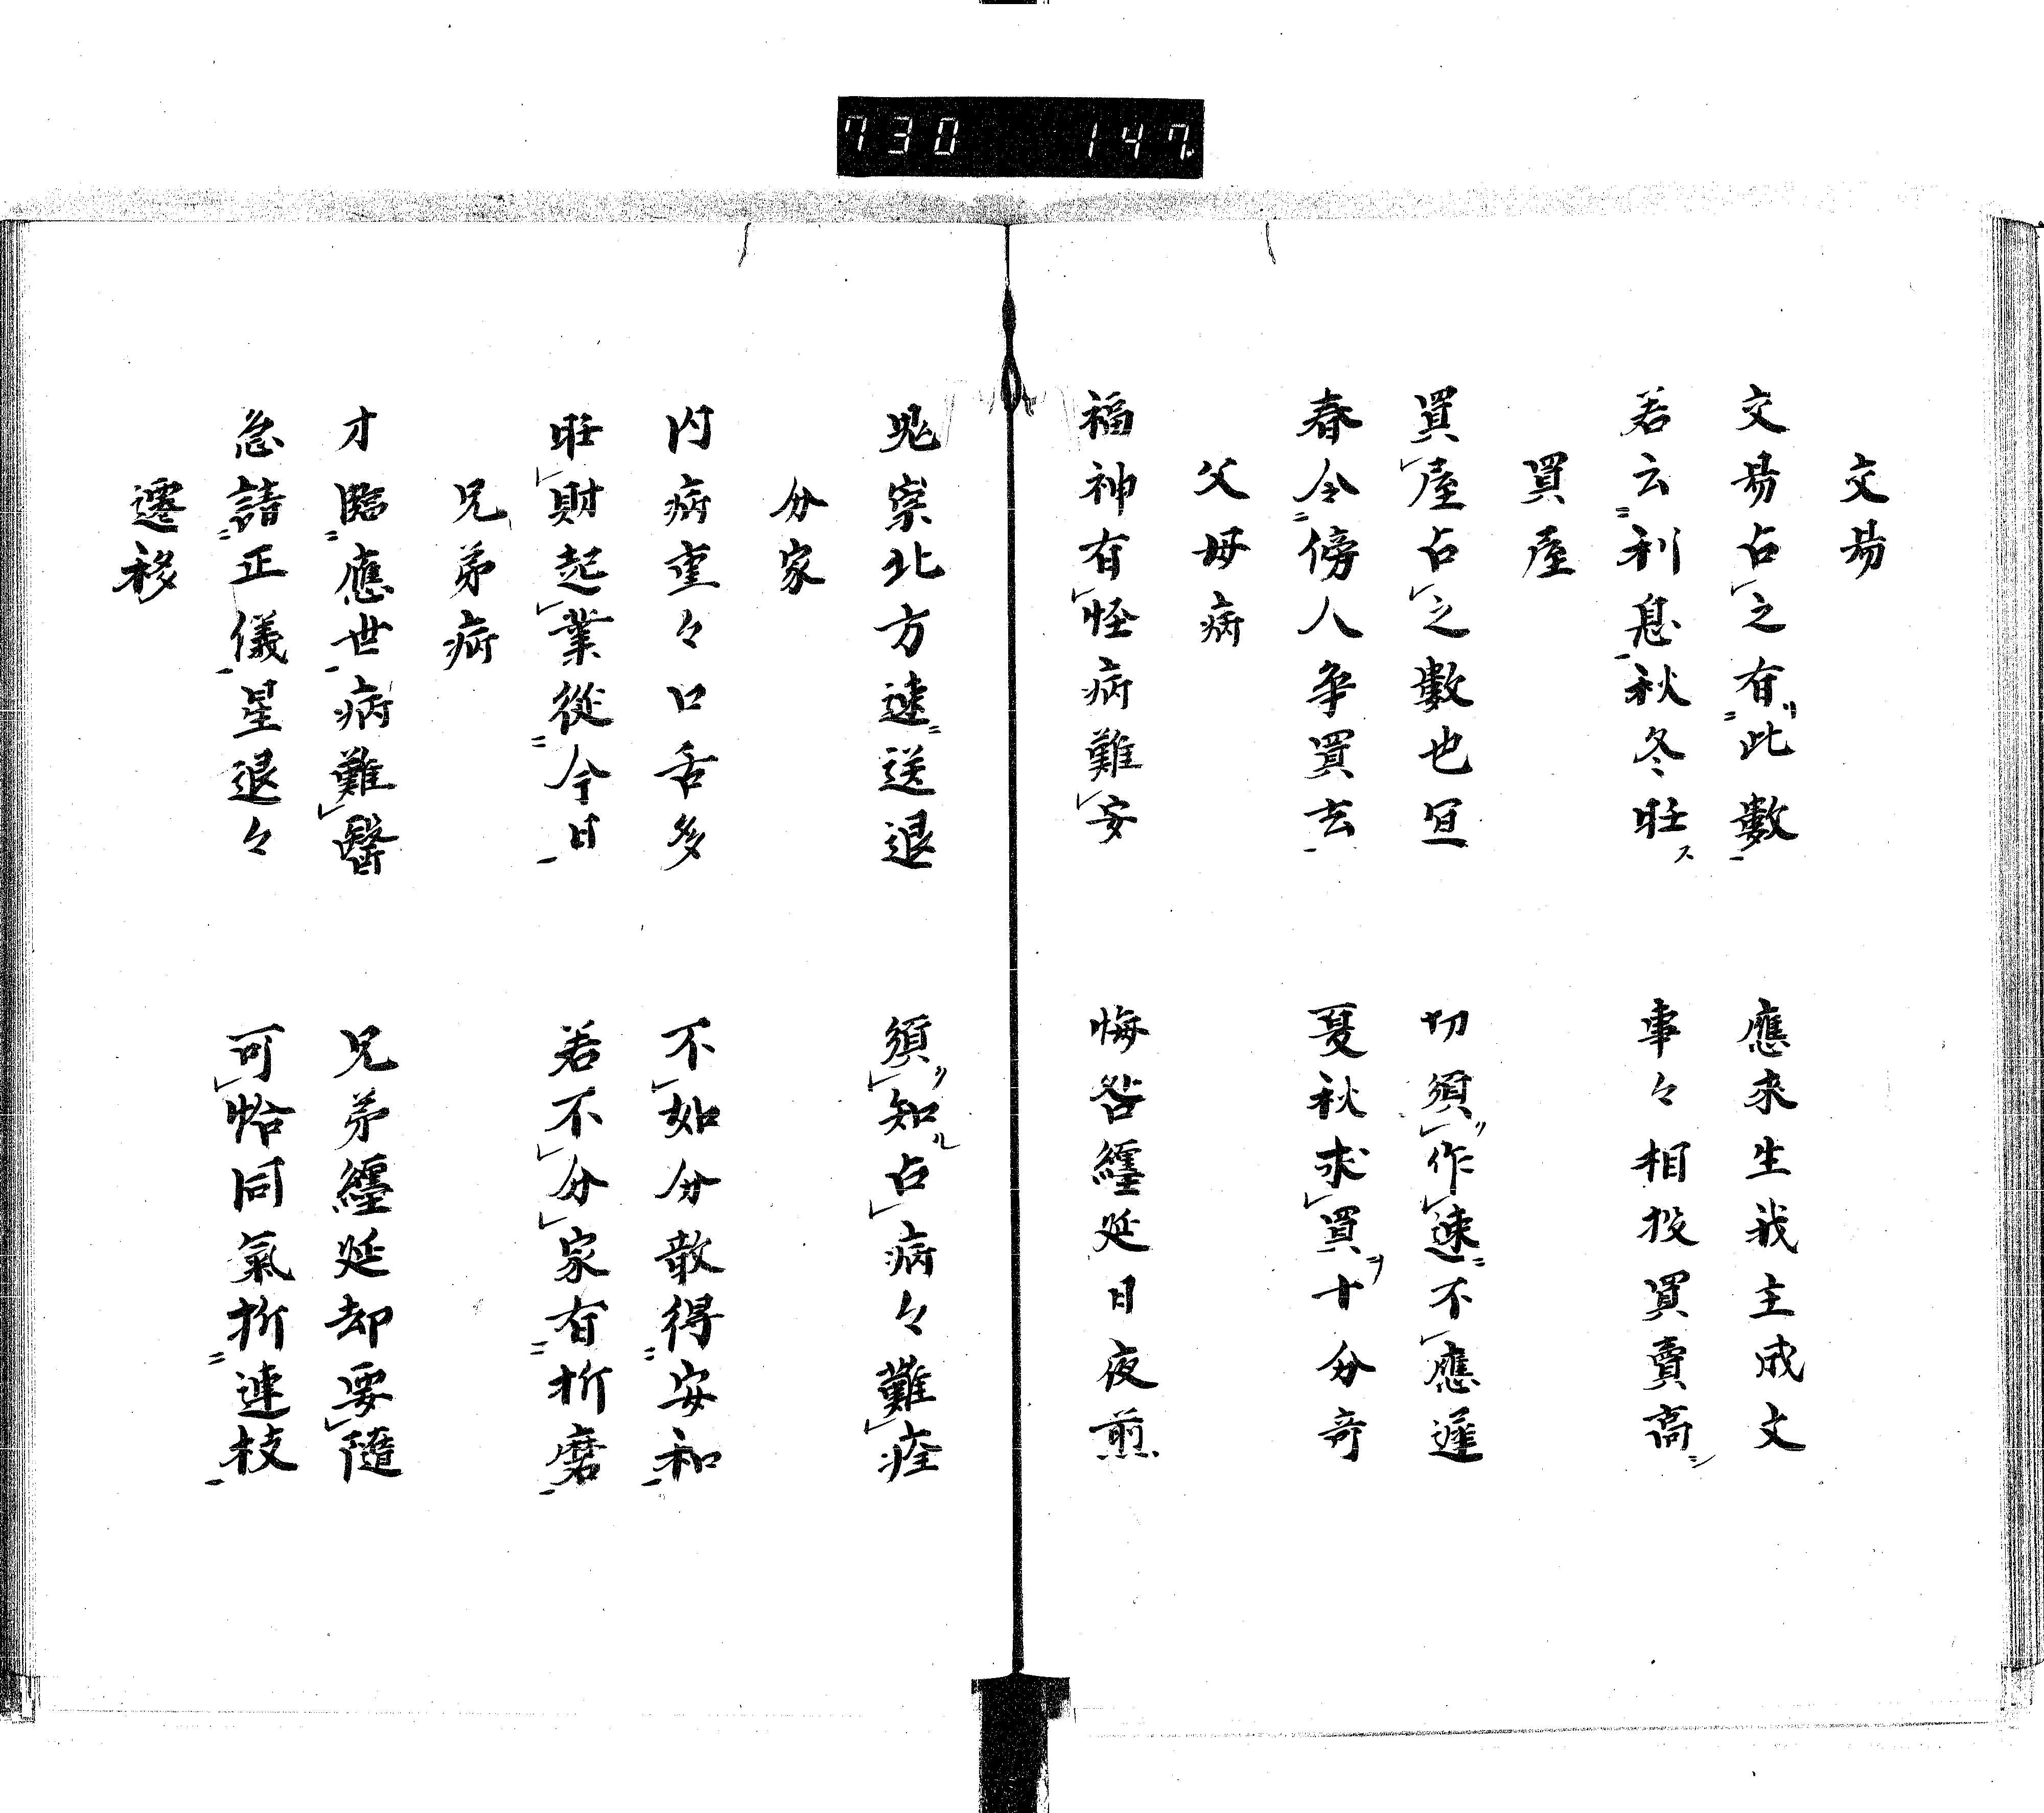 730 147
交易
交易占之有此數 應來生我主成文
若云利息秋冬旺ス 事々相投買賣高シ
買屋
買屋占之數也宜 切須作速不應遲
春令傍人爭買去 夏秋求買ヲ十分奇
父母病
福神有怪病難安 悔咎纏延日夜煎
鬼祟北方速送退 須知ル占病々難痊
分家
内病重々口舌多 不如分散得安和
旺財起業從今日 若不分家有折磨
兄弟病
才臨應世病難醫 兄弟纏延却要隨
急請正儀星退々 可恰同氣折連枝
遷移